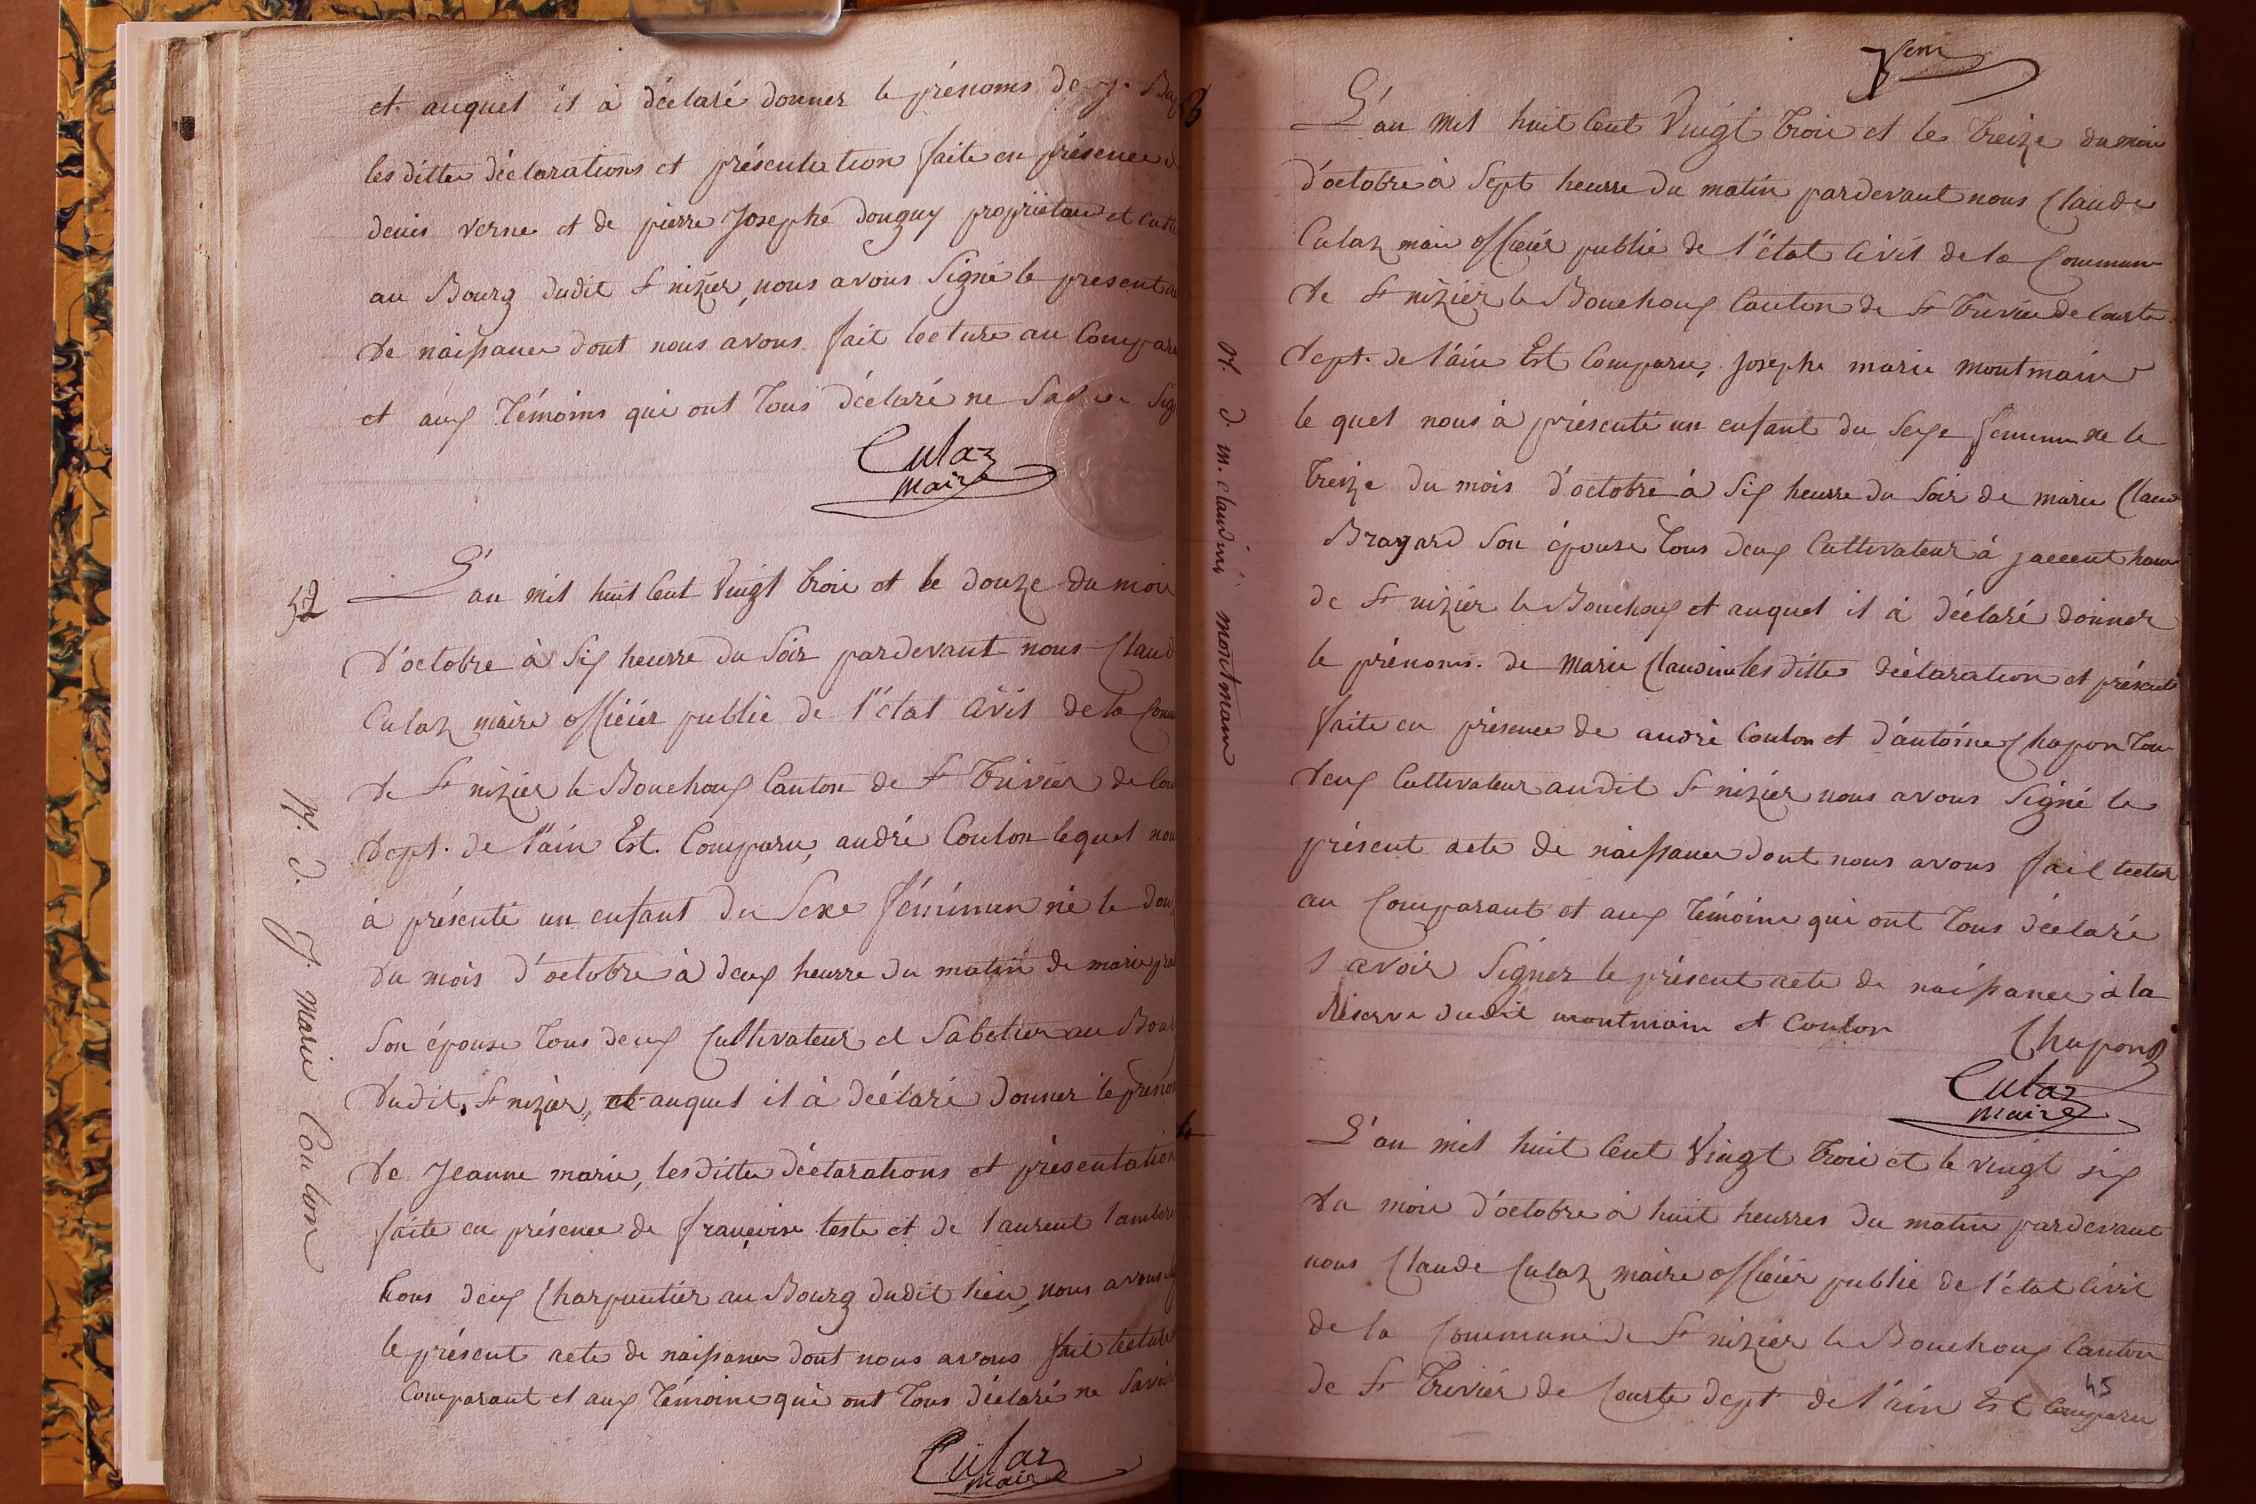 et auquel il à déclaré donner le prénoms de j. Ba
les ditte déclarations et présentation faite en présence d
denis verne et de pierre Josephe douguy propriétaire et cult
au Bourg dudit St nizier, nous avons Signé le present ac
de naissance dont nous avons fait lecture au Compara
et aux Témoins qui ont Tous déclaré ne Savoir Sig
Culaz
maire
52
L'an mil huit Cent Vingt trois et le douze du mois
d'octobre à Six heurre du Soir pardevant nous Claud
Culaz maire officier public de l'état Civil de la Comm
de St nizier le Bouchoux Canton de St Trivier de Cour
dept. de l'ain Est Comparu, andré Coulon lequel nou
à présenté un enfant du Sexe féminin né le dou
du mois d'octobre à deux heurre du matin de marie
Son épouse Tous deux Cultivateur et Sabotier au Bour
dudit St nizier, et auquel il à déclaré donner le prénom
de Jeanne marie, les ditte déclarations et présentation
faite en présence de françoise teste et de laurent lambere
tous deux Charpentier au Bourg dudit lieu, nous avons
le présent acte de naissance dont nous avons fait lecture
Comparant et aux Témoins qui ont Tous déclaré ne Savoir
Culaz
maire
N. d. J. marie Coulon
7em
53
L'an mil huit Cent Vingt trois et le treize du mois
d'octobre à Sept heurre du matin pardevant nous Claude
Culaz maire officier public de l'état Civil de la Commun
de St nizier le Bouchoux Canton de St Trivier de Courte
dept. de l'ain Est Comparu, Josephe marie montmain
le quel nous à présenté un enfant du Sexe féminin né le
treize du mois d'octobre à Six heurre du Soir de marie Claud
Brayard Son épouse Tous deux Cultivateur à
de St nizier le Bouchoux et auquel il à déclaré donner
le prénoms. de Marie Claudine les ditte déclaration et présent
faite en présence de andré Coulon et d'antoine Chapon Tou
deux Cultivateur audit St nizier nous avons Signé le
présent acte de naissance dont nous avons fait lectur
au Comparant et aux Témoins qui ont Tous déclaré
Savoir Signer le présent acte de naissance à la
Réserve dudit montmain et Coulon
Chapon
Culaz
maire
N. d. m. claudine montmain
L'an mil huit Cent Vingt trois et le vingt six
du mois d'octobre à huit heurres du matin pardevant
nous Claude Culaz maire officier public de l'état Civil
de la Commune de St nizier le Bouchoux Canton
de St Trivier de Courte dept de l'ain Est Comparu
45